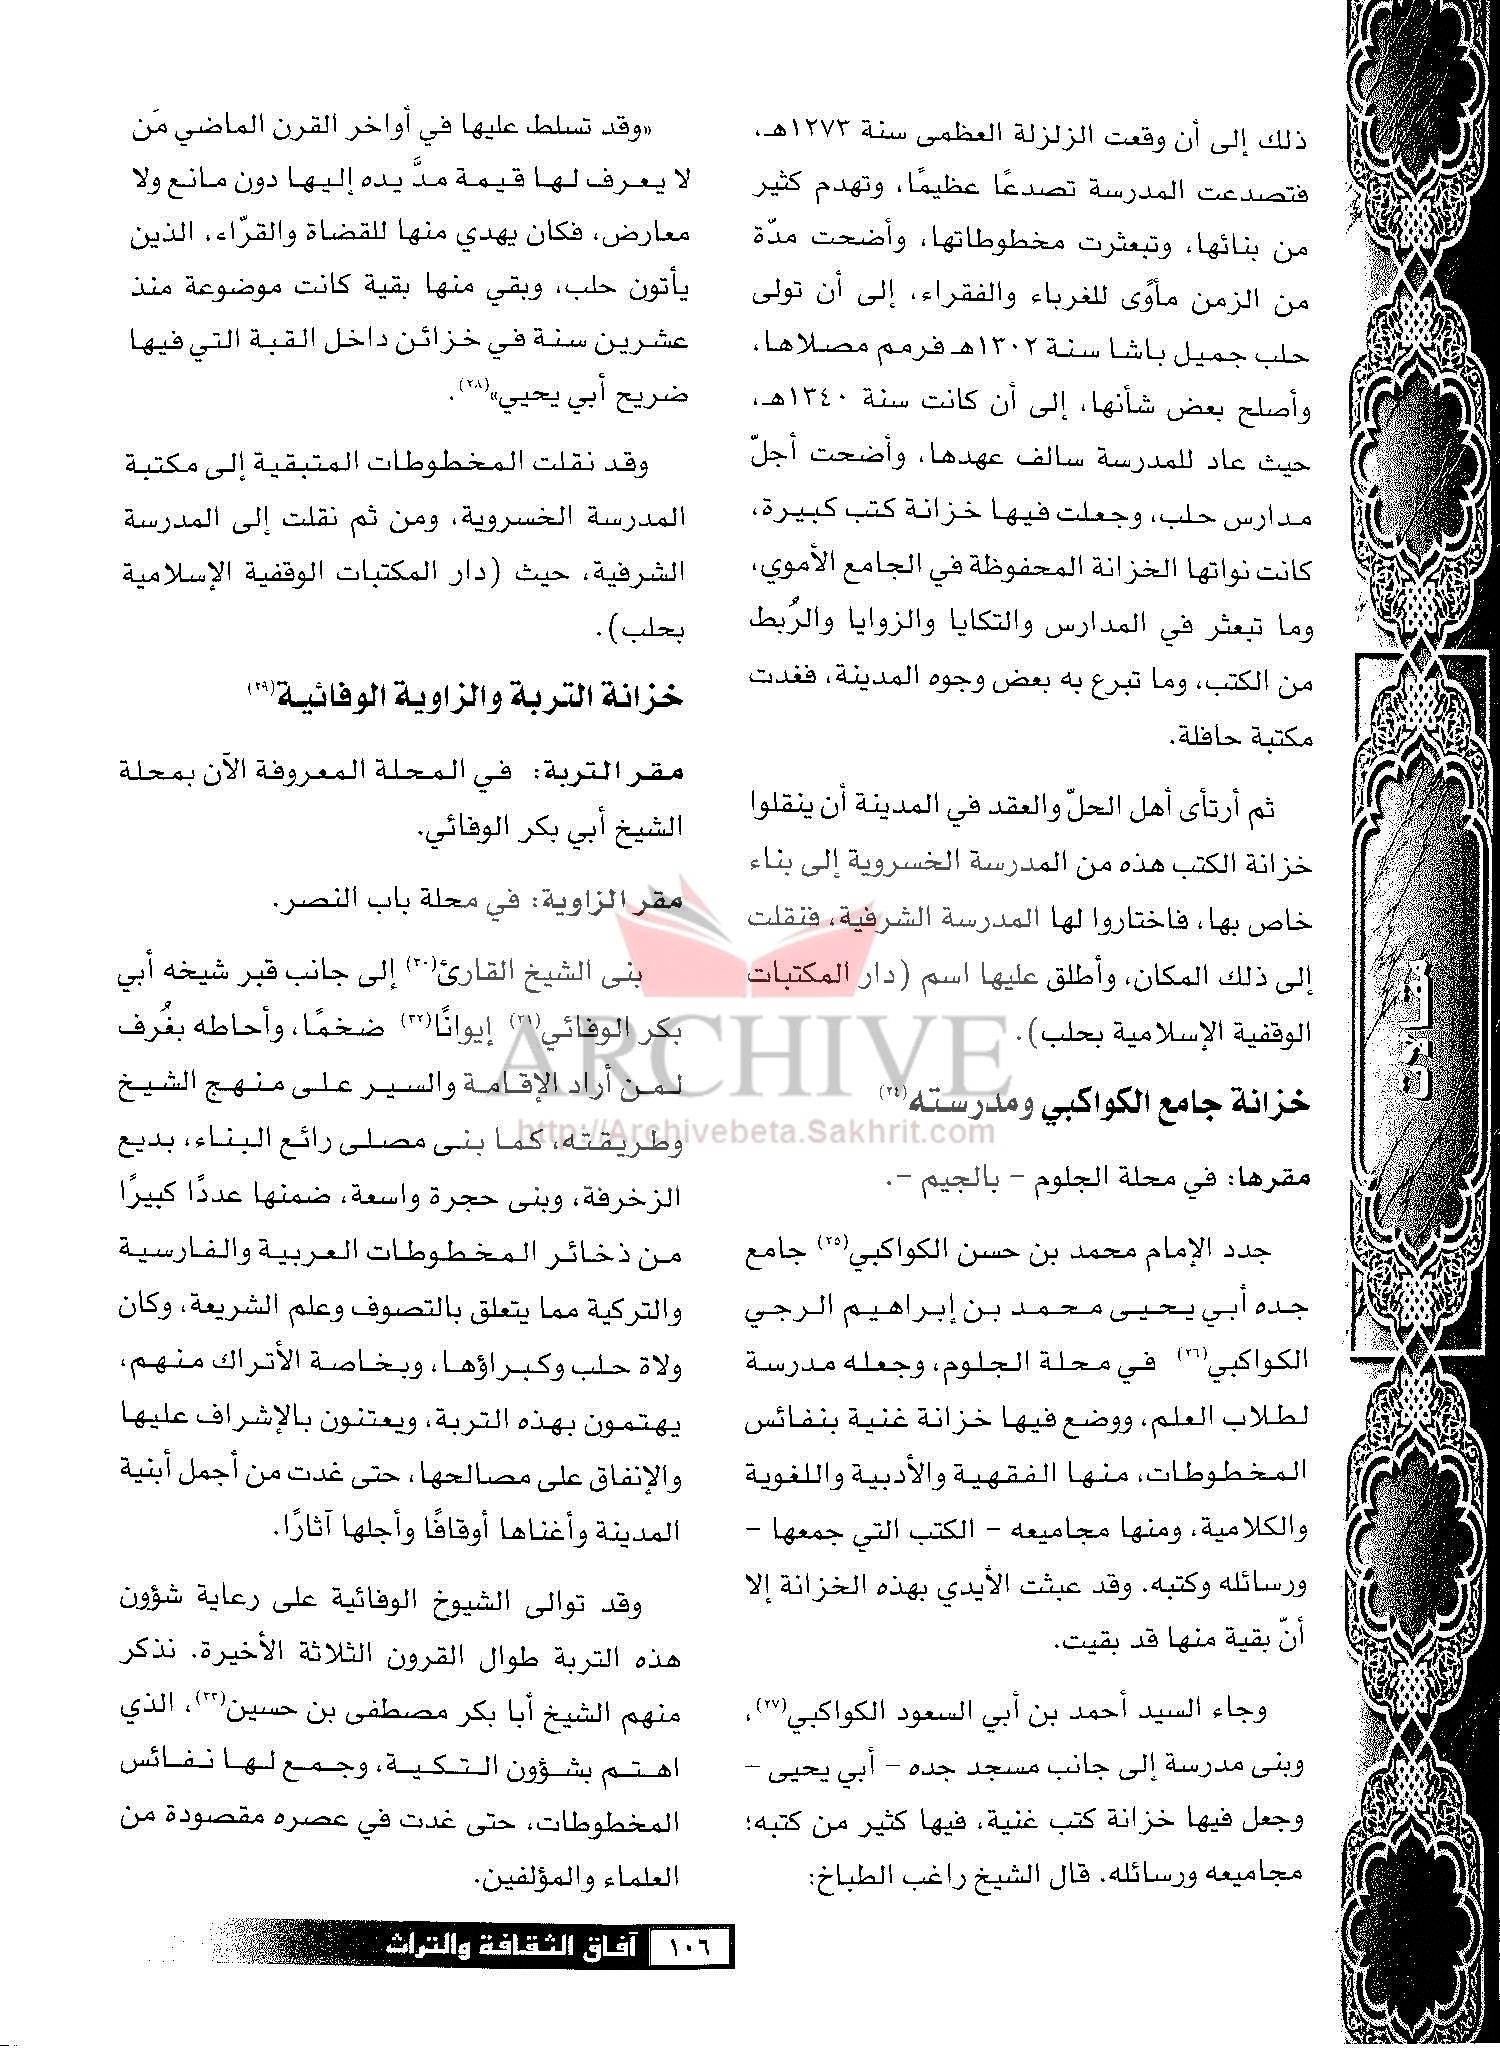 ذلك إلى أن وقعت الزلزلة العظمى سنة ١٢٧٣هـ،
فتصدعت المدرسة تصدعًا عظيمًا، وتهدم كثير
من بنائها، وتبعثرت مخطوطاتها، وأضحت مدّة
من الزمن مأوًى للغرباء والفقراء، إلى أن تولى
حلب جميل باشا سنة ١٣٠٢هـ فرمم مصلاها،
وأصلح بعض شأنها، إلى أن كانت سنة ١٣٤٠هـ،
حيث عاد للمدرسة سالف عهدها، وأضحت أجلّ
مدارس حلب، وجعلت فيها خزانة كتب كبيرة،
كانت نواتها الخزانة المحفوظة في الجامع الأموي،
وما تبعثر في المدارس والتكايا والزوايا والرُبط
من الكتب، وما تبرع به بعض وجوه المدينة، فغدت
مكتبة حافلة.
ثم أرتأى أهل الحلّ والعقد في المدينة أن ينقلوا
خزانة الكتب هذه من المدرسة الخسروية إلى بناء
خاص بها، فاختاروا لها المدرسة الشرفية، فنقلت
إلى ذلك المكان، وأطلق عليها اسم (دار المكتبات
الوقفية الإسلامية بحلب).
خزانة جامع الكواكبي ومدرسته(٢٤)
مقرها: في محلة الجلوم - بالجيم -.
جدد الإمام محمد بن حسن الكواكبي(٢٥) جامع
جده أبي يحيى محمد بن إبراهيم الرجي
الكواكبي(٢٦) في محلة الجلوم، وجعله مدرسة
لطلاب العلم، ووضع فيها خزانة غنية بنفائس
المخطوطات، منها الفقهية والأدبية واللغوية
والكلامية، ومنها مجاميعه - الكتب التي جمعها -
ورسائله وكتبه. وقد عبثت الأيدي بهذه الخزانة إلا
أنّ بقية منها قد بقيت.
وجاء السيد أحمد بن أبي السعود الكواكبي(٢٧)،
وبنى مدرسة إلى جانب مسجد جده - أبي يحيى -
وجعل فيها خزانة كتب غنية، فيها كثير من كتبه؛
مجاميعه ورسائله. قال الشيخ راغب الطباخ:
«وقد تسلط عليها في أواخر القرن الماضي مَن
لا يعرف لها قيمة مدَّ يده إليها دون مانع ولا
معارض، فكان يهدي منها للقضاة والقرّاء، الذين
يأتون حلب، وبقي منها بقية كانت موضوعة منذ
عشرين سنة في خزائن داخل القبة التي فيها
ضريح أبي يحيي»(٢٨).
وقد نقلت المخطوطات المتبقية إلى مكتبة
المدرسة الخسروية، ومن ثم نقلت إلى المدرسة
الشرفية، حيث (دار المكتبات الوقفية الإسلامية
بحلب).
خزانة التربة والزاوية الوفائية(٢٩)
مقر التربة: في المحلة المعروفة الآن بمحلة
الشيخ أبي بكر الوفائي.
مقر الزاوية: في محلة باب النصر.
بنى الشيخ القارئ(٣٠) إلى جانب قبر شيخه أبي
بكر الوفائي(٣١) إيوانًا(٣٢) ضخمًا، وأحاطه بغُرف
لمن أراد الإقامة والسير على منهج الشيخ
وطريقته، كما بنى مصلى رائع البناء، بديع
الزخرفة، وبنى حجرة واسعة، ضمنها عددًا كبيرًا
من ذخائر المخطوطات العربية والفارسية
والتركية مما يتعلق بالتصوف وعلم الشريعة، وكان
ولاة حلب وكبراؤها، وبخاصة الأتراك منهم،
يهتمون بهذه التربة، ويعتنون بالإشراف عليها
والإنفاق على مصالحها، حتى غدت من أجمل أبنية
المدينة وأغناها أوقافًا وأجلها آثارًا.
وقد توالى الشيوخ الوفائية على رعاية شؤون
هذه التربة طوال القرون الثلاثة الأخيرة. نذكر
منهم الشيخ أبا بكر مصطفى بن حسين(٣٣)، الذي
اهتم بشؤون التكية، وجمع لها نفائس
المخطوطات، حتى غدت في عصره مقصودة من
العلماء والمؤلفين.
مقالات
ARCHIVE
http://Archivebeta.Sakhrit.com
١٠٦ آفاق الثقافة والتراث